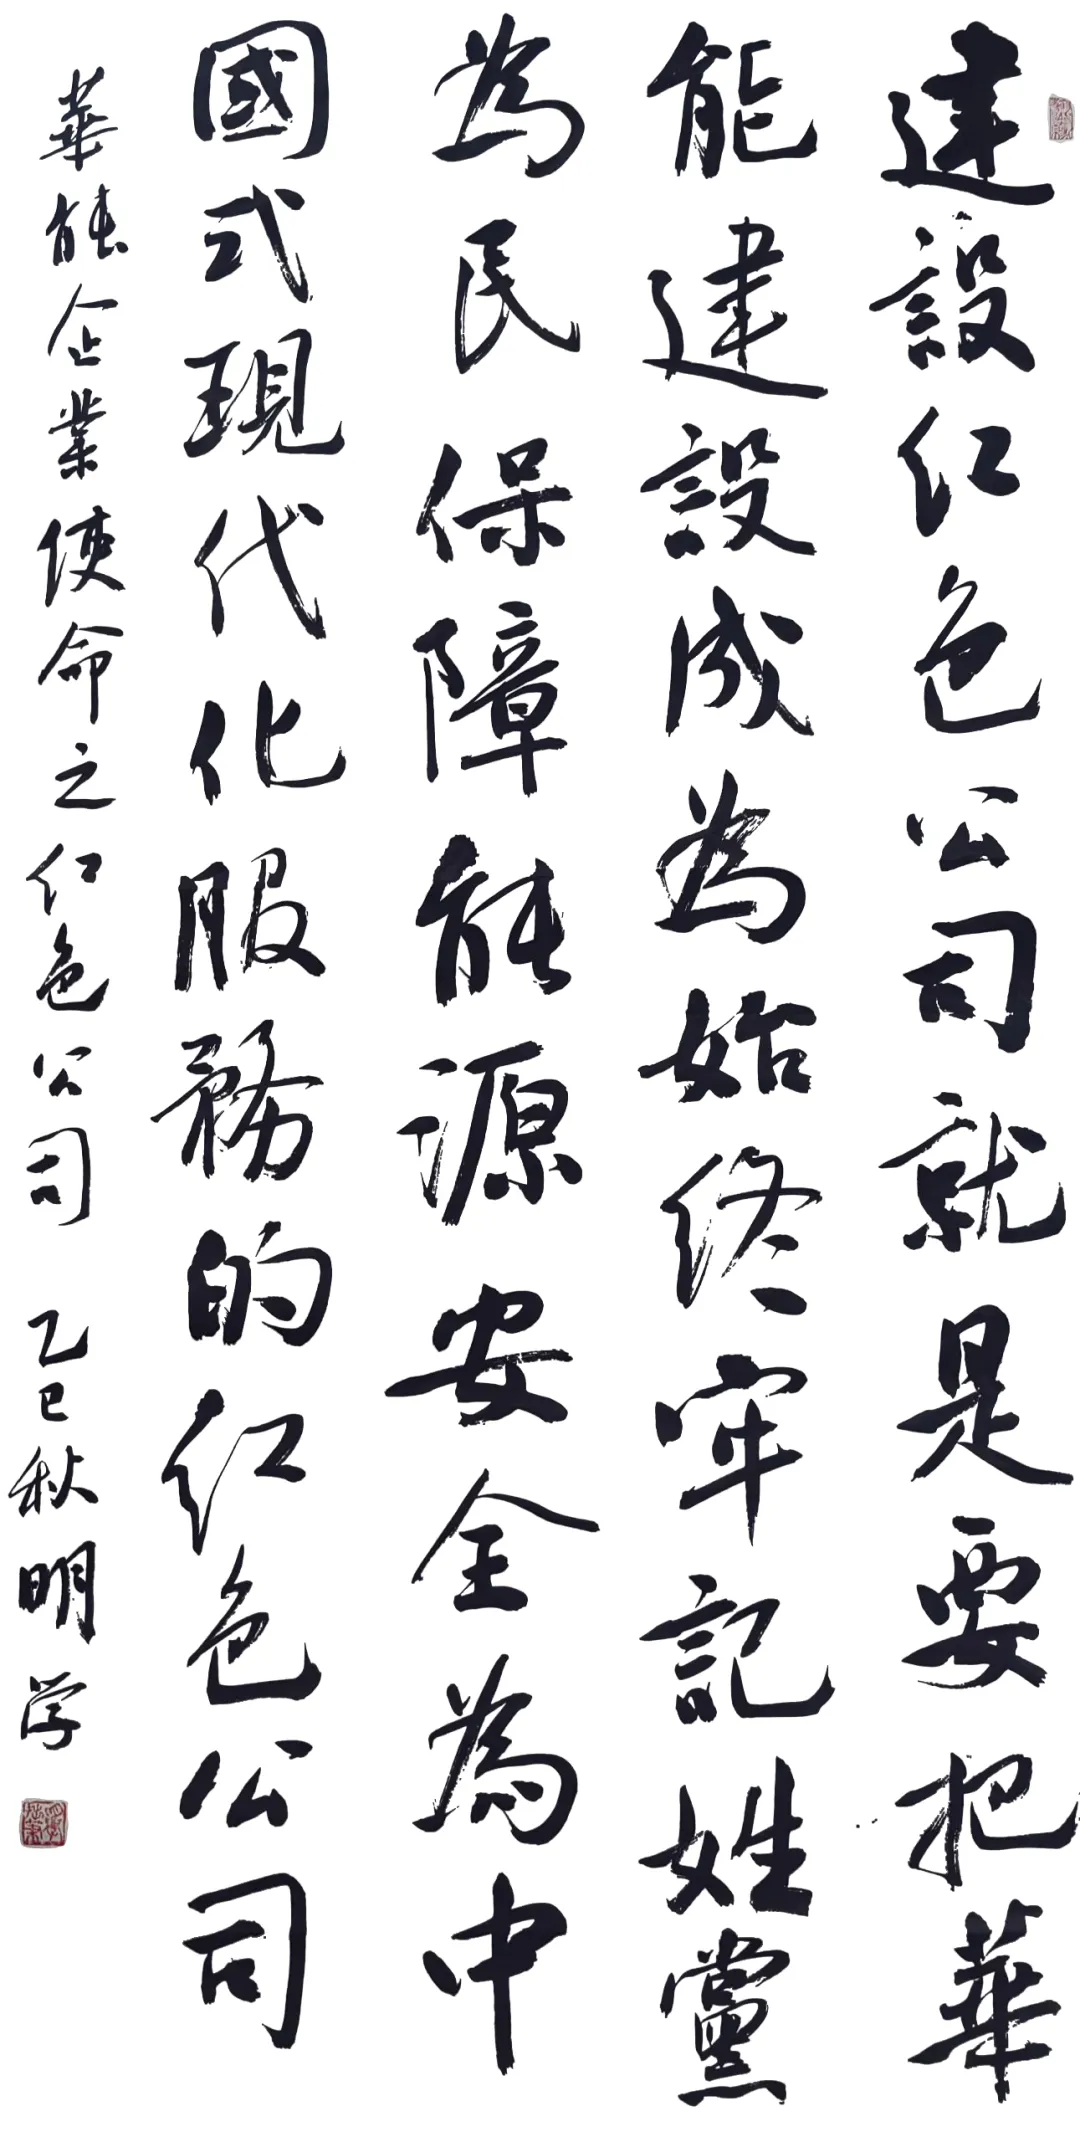 建設红色公司就是要把華
能建設成為始终牢記姓黨
為民保障能源安全為中
國式現代化服務的红色公司
華能企業使命之红色公司 乙巳秋明学